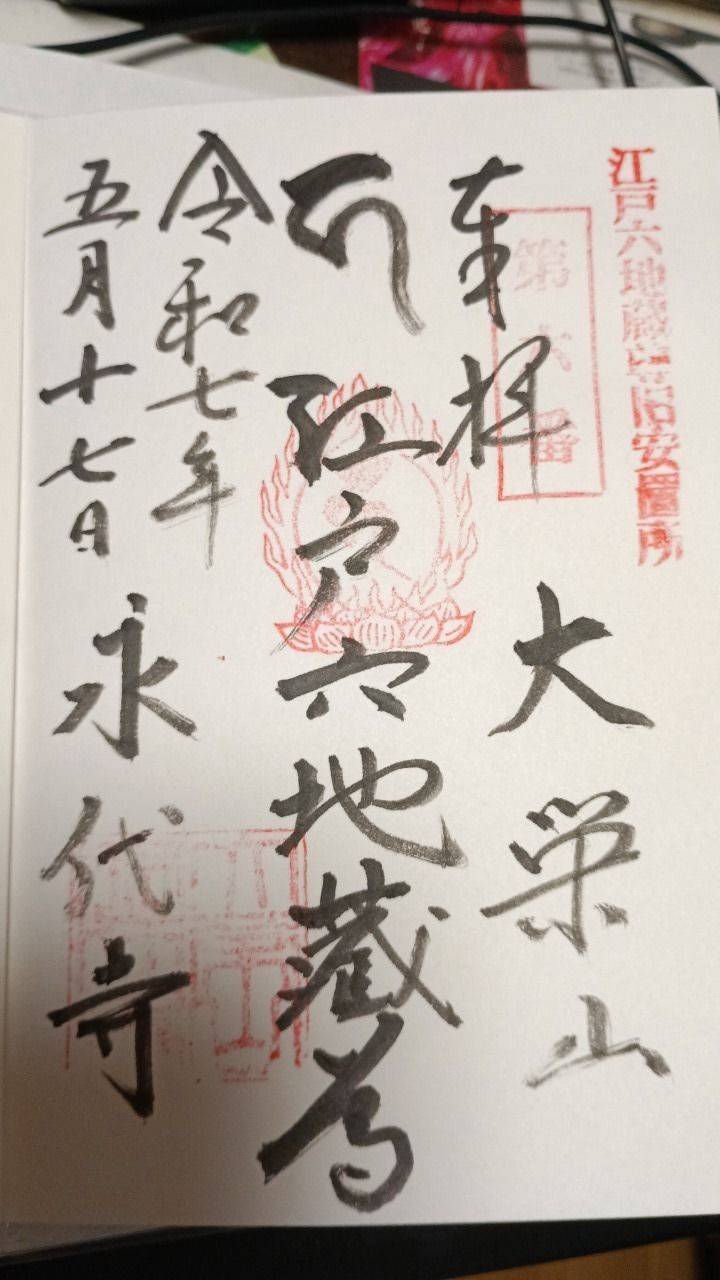 江戸六地蔵尊旧安置所
第六番
奉拝
大栄山
江戸六地蔵尊
令和七年
五月十七日
永代寺